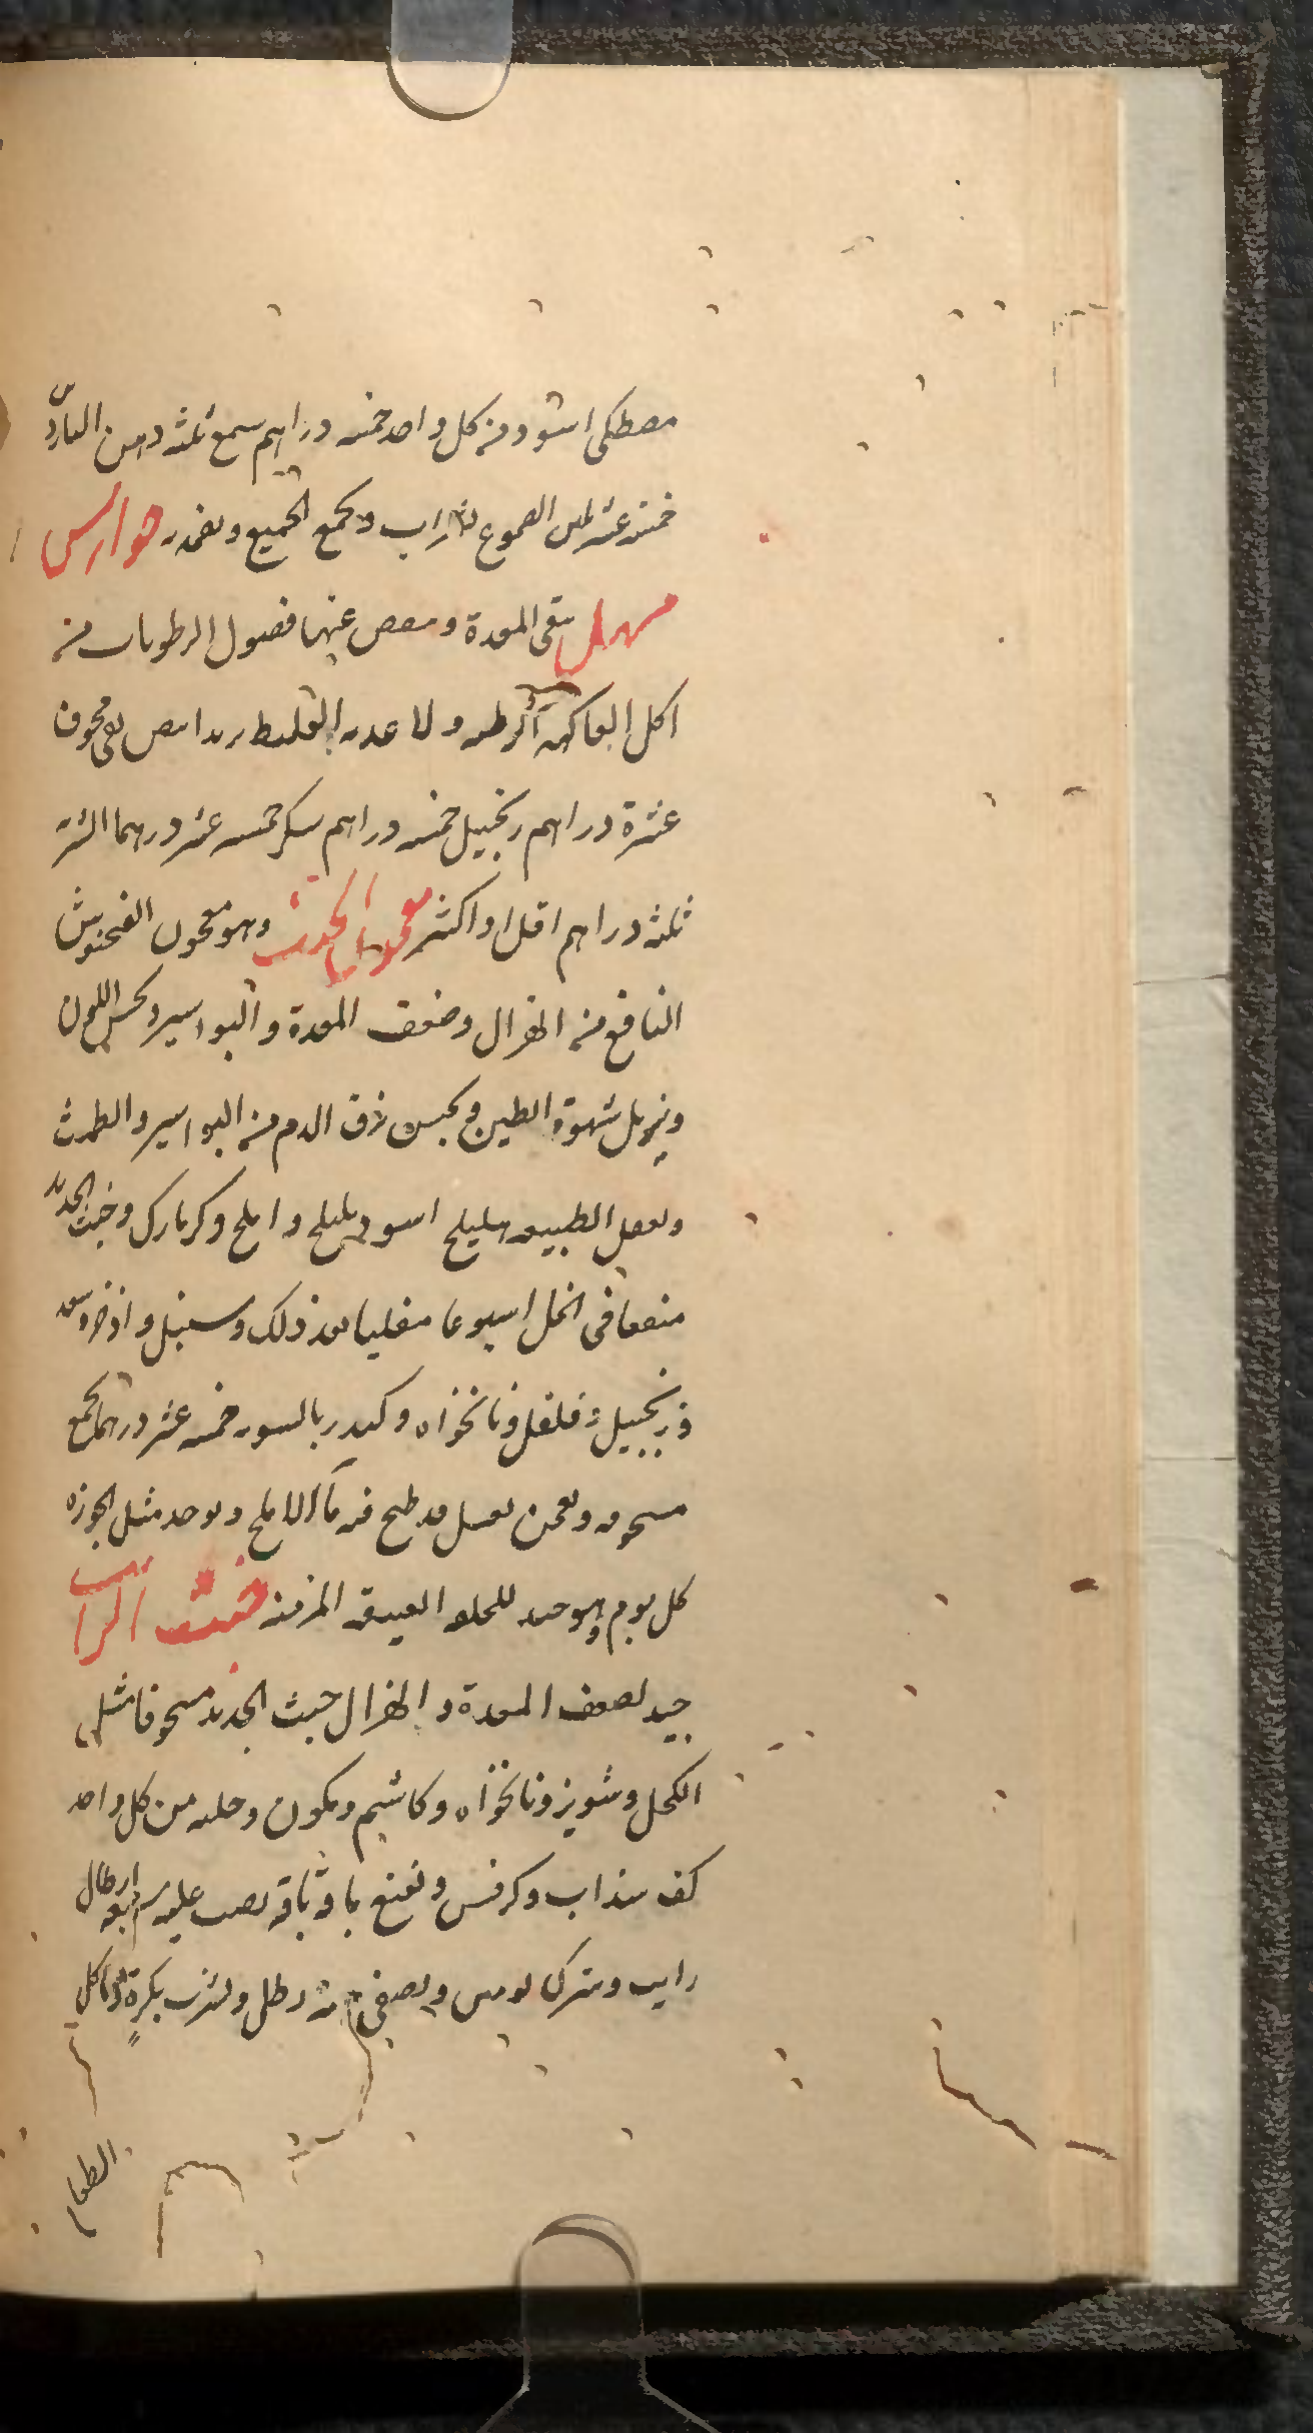 مصطكى اشق من كل واحد خمسة دراهم شمع ثلثة دهن الناردين
خمسة عشر تحل الصموغ بشراب ويجمع الجميع ويضمد جوارش
مسهل ينقى المعدة وينقص عنها فضول الرطوبات من
اكل الفاكهة الرطبة والاغذية الغليظة تربد ابيض نقى مجوف
عشرة دراهم زنجبيل خمسة دراهم سكر خمسة عشر درهما الشربة
ثلثة دراهم اقل او اكثر معجون الخبث وهو معجون الفنجنوش
النافع من الهزال وضعف المعدة والبواسير ويحسن اللون
ويزيل شهوة الطين ويحبس نزف الدم من البواسير والطمث
ويعقل الطبيعة هليلج اسود بليلج واملج وخبث الحديد
منقعا فى الخل اسبوعا مقليا بعد ذلك وسنبل واذخر وسعد
وزنجبيل وفلفل ونانخواه وكندر بالسوية خمسة عشر درهما يجمع
مسحوقة ويعجن بعسل قد طبخ فيه ماء الاملج ويوخذ مثل الجوزة
كل يوم وهو جيد العتيقة المزمنة خبث الرائب
جيد لضعف المعدة والهزال خبث الحديد مسحوقا مثل
الكحل وشونيز ونانخواه وكاشم وكمون وحلبة من كل واحد
كف سذاب وكرفس ونعنع باقة باقة يصب عليه اربعة ارطال
رايب ويترك يومين ويصفى منه رطل ويشرب بكرة وياكل
الطعام